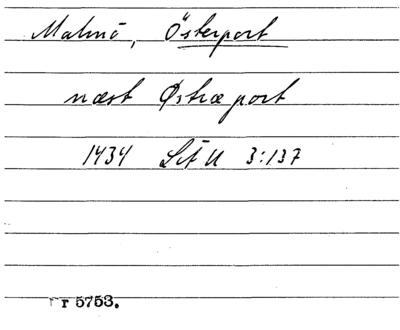 Malmö, Österport
næst Østræ port
1434 SÅU 3:137
r 5753.